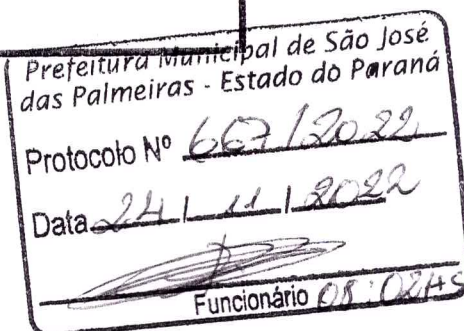 Prefeitura Municipal de São José
das Palmeiras - Estado do Paraná
Protocolo Nº 667 / 2022
Data 24 / 11 / 2022
Funcionário 08:02HS